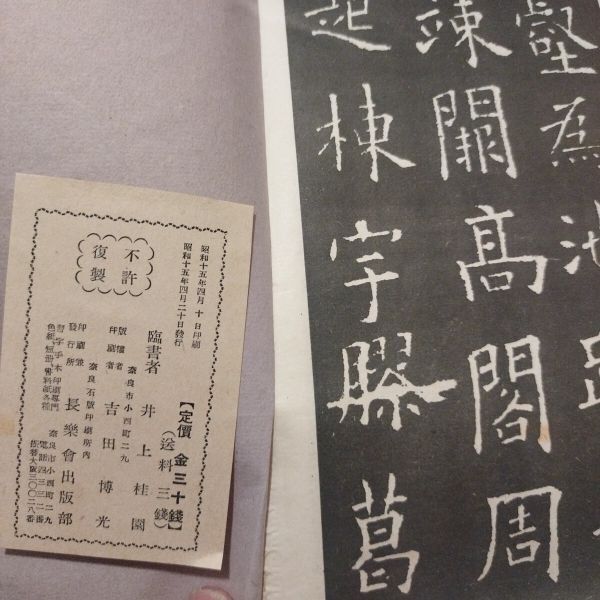 壑為池
竦闕高閣周
起棟宇膠葛
昭和十五年四月十日印刷
昭和十五年四月二十日發行
不許
復製
【定價金三十錢】
(送料三錢)
臨書者 井上桂園
奈良市小西町二九
印刷者 吉田博光
奈良石版印刷所内
發行所 長樂會出版部
奈良市小西町二九
電話四三三二番
振替大阪三〇〇二八番
習字手本印刷專門